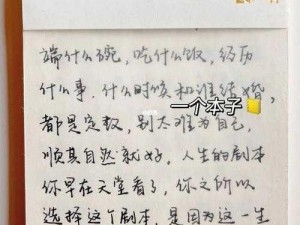 端什么碗，吃什么饭，经历
什么事，什么时候和谁结婚，
一个本子
都是定数，别太难为自己，
顺其自然就好，人生的剧本
你早在天堂看了，你之所以
选择这个剧本，是因为这一生